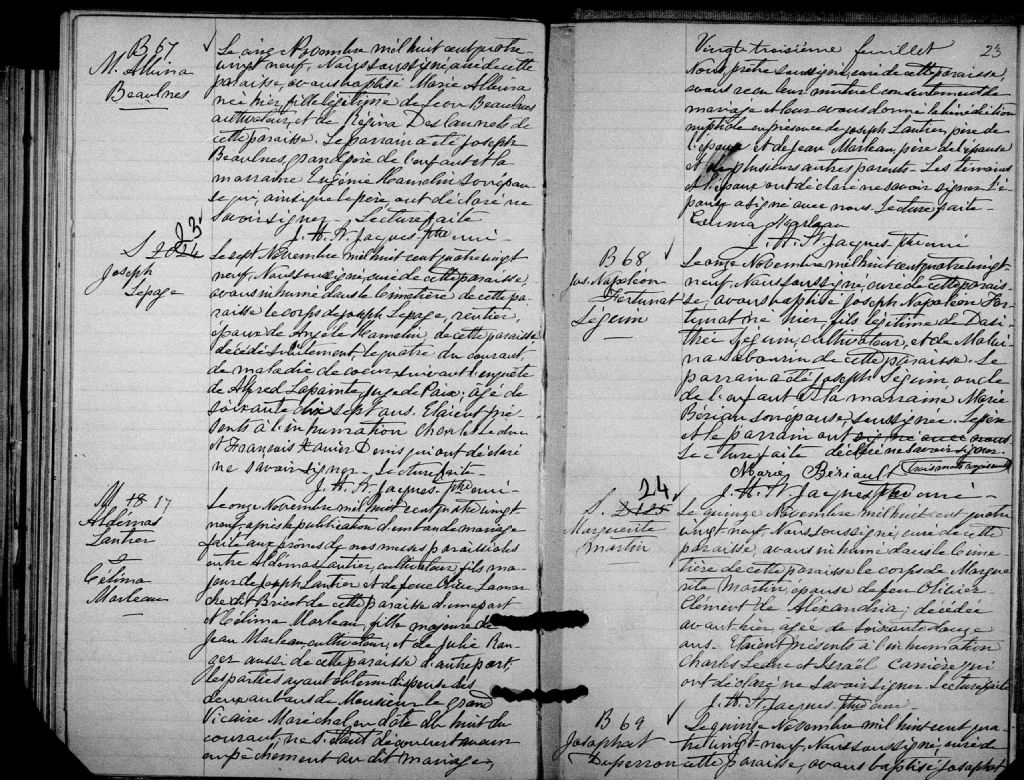 B 67
M. Albina
Beaulnes
Le cinq Novembre mil huit cent quatre-
vingt neuf, Nous soussigné, curé de cette
paroisse, avons baptisé Marie Albina
née hier, fille légitime de Jean Beaulnes
cultivateur, et de Régina Deslauriers de
cette paroisse. Le parrain a été Joseph
Beaulnes, grand père de l'enfant et la
marraine Eugénie Hamelin son épou-
se qui, ainsi que le père, ont déclaré ne
savoir signer. Lecture faite
J. H. St Jacques Ptre curé
23
S
Joseph
Lepage
Le sept Novembre mil huit cent quatre vingt
neuf, Nous soussigné, curé de cette paroisse,
avons inhumé dans le Cimetière de cette pa-
roisse le corps de Joseph Lepage, rentier,
époux de Angèle Hamelin de cette paroisse
décédé subitement, le quatre du courant,
de maladie de coeur suivant l'enquête
de Alfred Lapointe Juge de Paix, âgé de
soixante dix sept ans. Etaient pré-
sents à l'inhumation Charles Leduc
et François Xavier Denis qui ont déclaré
ne savoir signer. Lecture faite
J. H. St Jacques Ptre curé
M 18 17
Aldémas
Lantier
&
Célima
Marleau
Le onze Novembre mil huit cent quatre vingt
neuf, après la publication d'un ban de mariage
faite aux prônes de nos messes paroissiales
entre Aldémas Lantier, cultivateur, fils ma-
jeur de Joseph Lantier et de feue Olive Lamar
che dit Bricot de cette paroisse d'une part
et Célima Marleau, fille majeure de
Jean Marleau, cultivateur, et de Julie Ran-
ger aussi de cette paroisse d'autre part,
les parties ayant obtenu dispense des
deux autres bans de Monsieur le grand
Vicaire Maréchal, en date du huit du
courant, ne s'étant découvert aucun
empêchement au dit mariage,
Vingt troisième feuillet 23
Nous, prêtre soussigné, curé de cette paroisse,
avons reçu leur mutuel consentement de
mariage et leur avons donné la bénédiction
nuptiale en présence de Joseph Lantier, père de
l'époux et de Jean Marleau, père de l'épouse
et de plusieurs autres parents. Les témoins
et l'époux ont déclaré ne savoir signer. L'é-
pouse a signé avec nous. Lecture faite.
Celima Marleau
J. H. St Jacques Ptre curé
B 68
Jos. Napoléon
Fortunat
Séguin
Le onze Novembre mil huit cent quatre vingt-
neuf, Nous soussigné, curé de cette parois-
se, avons baptisé Joseph Napoléon For-
tunat né hier, fils légitime de Dosi-
thée Séguin, cultivateur, et de Malvi-
na Sabourin de cette paroisse. Le
parrain a été Joseph Séguin, oncle
de l'enfant et la marraine Marie
Bériau son épouse, soussignée. Le père
et le parrain ont signé avec nous
Lecture faite déclaré ne savoir signer.
Marie Bériault
J. H. St Jacques Ptre curé
24
S.
Marguerite
Martin
Le quinze Novembre mil huit cent quatre
vingt neuf, Nous soussigné, curé de cette
paroisse, avons inhumé dans le Cime
tière de cette paroisse le corps de Margue
rite Martin, épouse de feu Olivier
Clément de Alexandria, décédée
avant hier, âgée de soixante douze
ans. Etaient présents à l'inhumation
Charles Leduc et Israël Carrière qui
ont déclaré ne savoir signer. Lecture faite
J. H. St Jacques Ptre curé
B 69
Josaphat
Duperron
Le quinze Novembre mil huit cent qua
tre vingt-neuf, Nous soussigné, curé de
cette paroisse, avons baptisé Josaphat